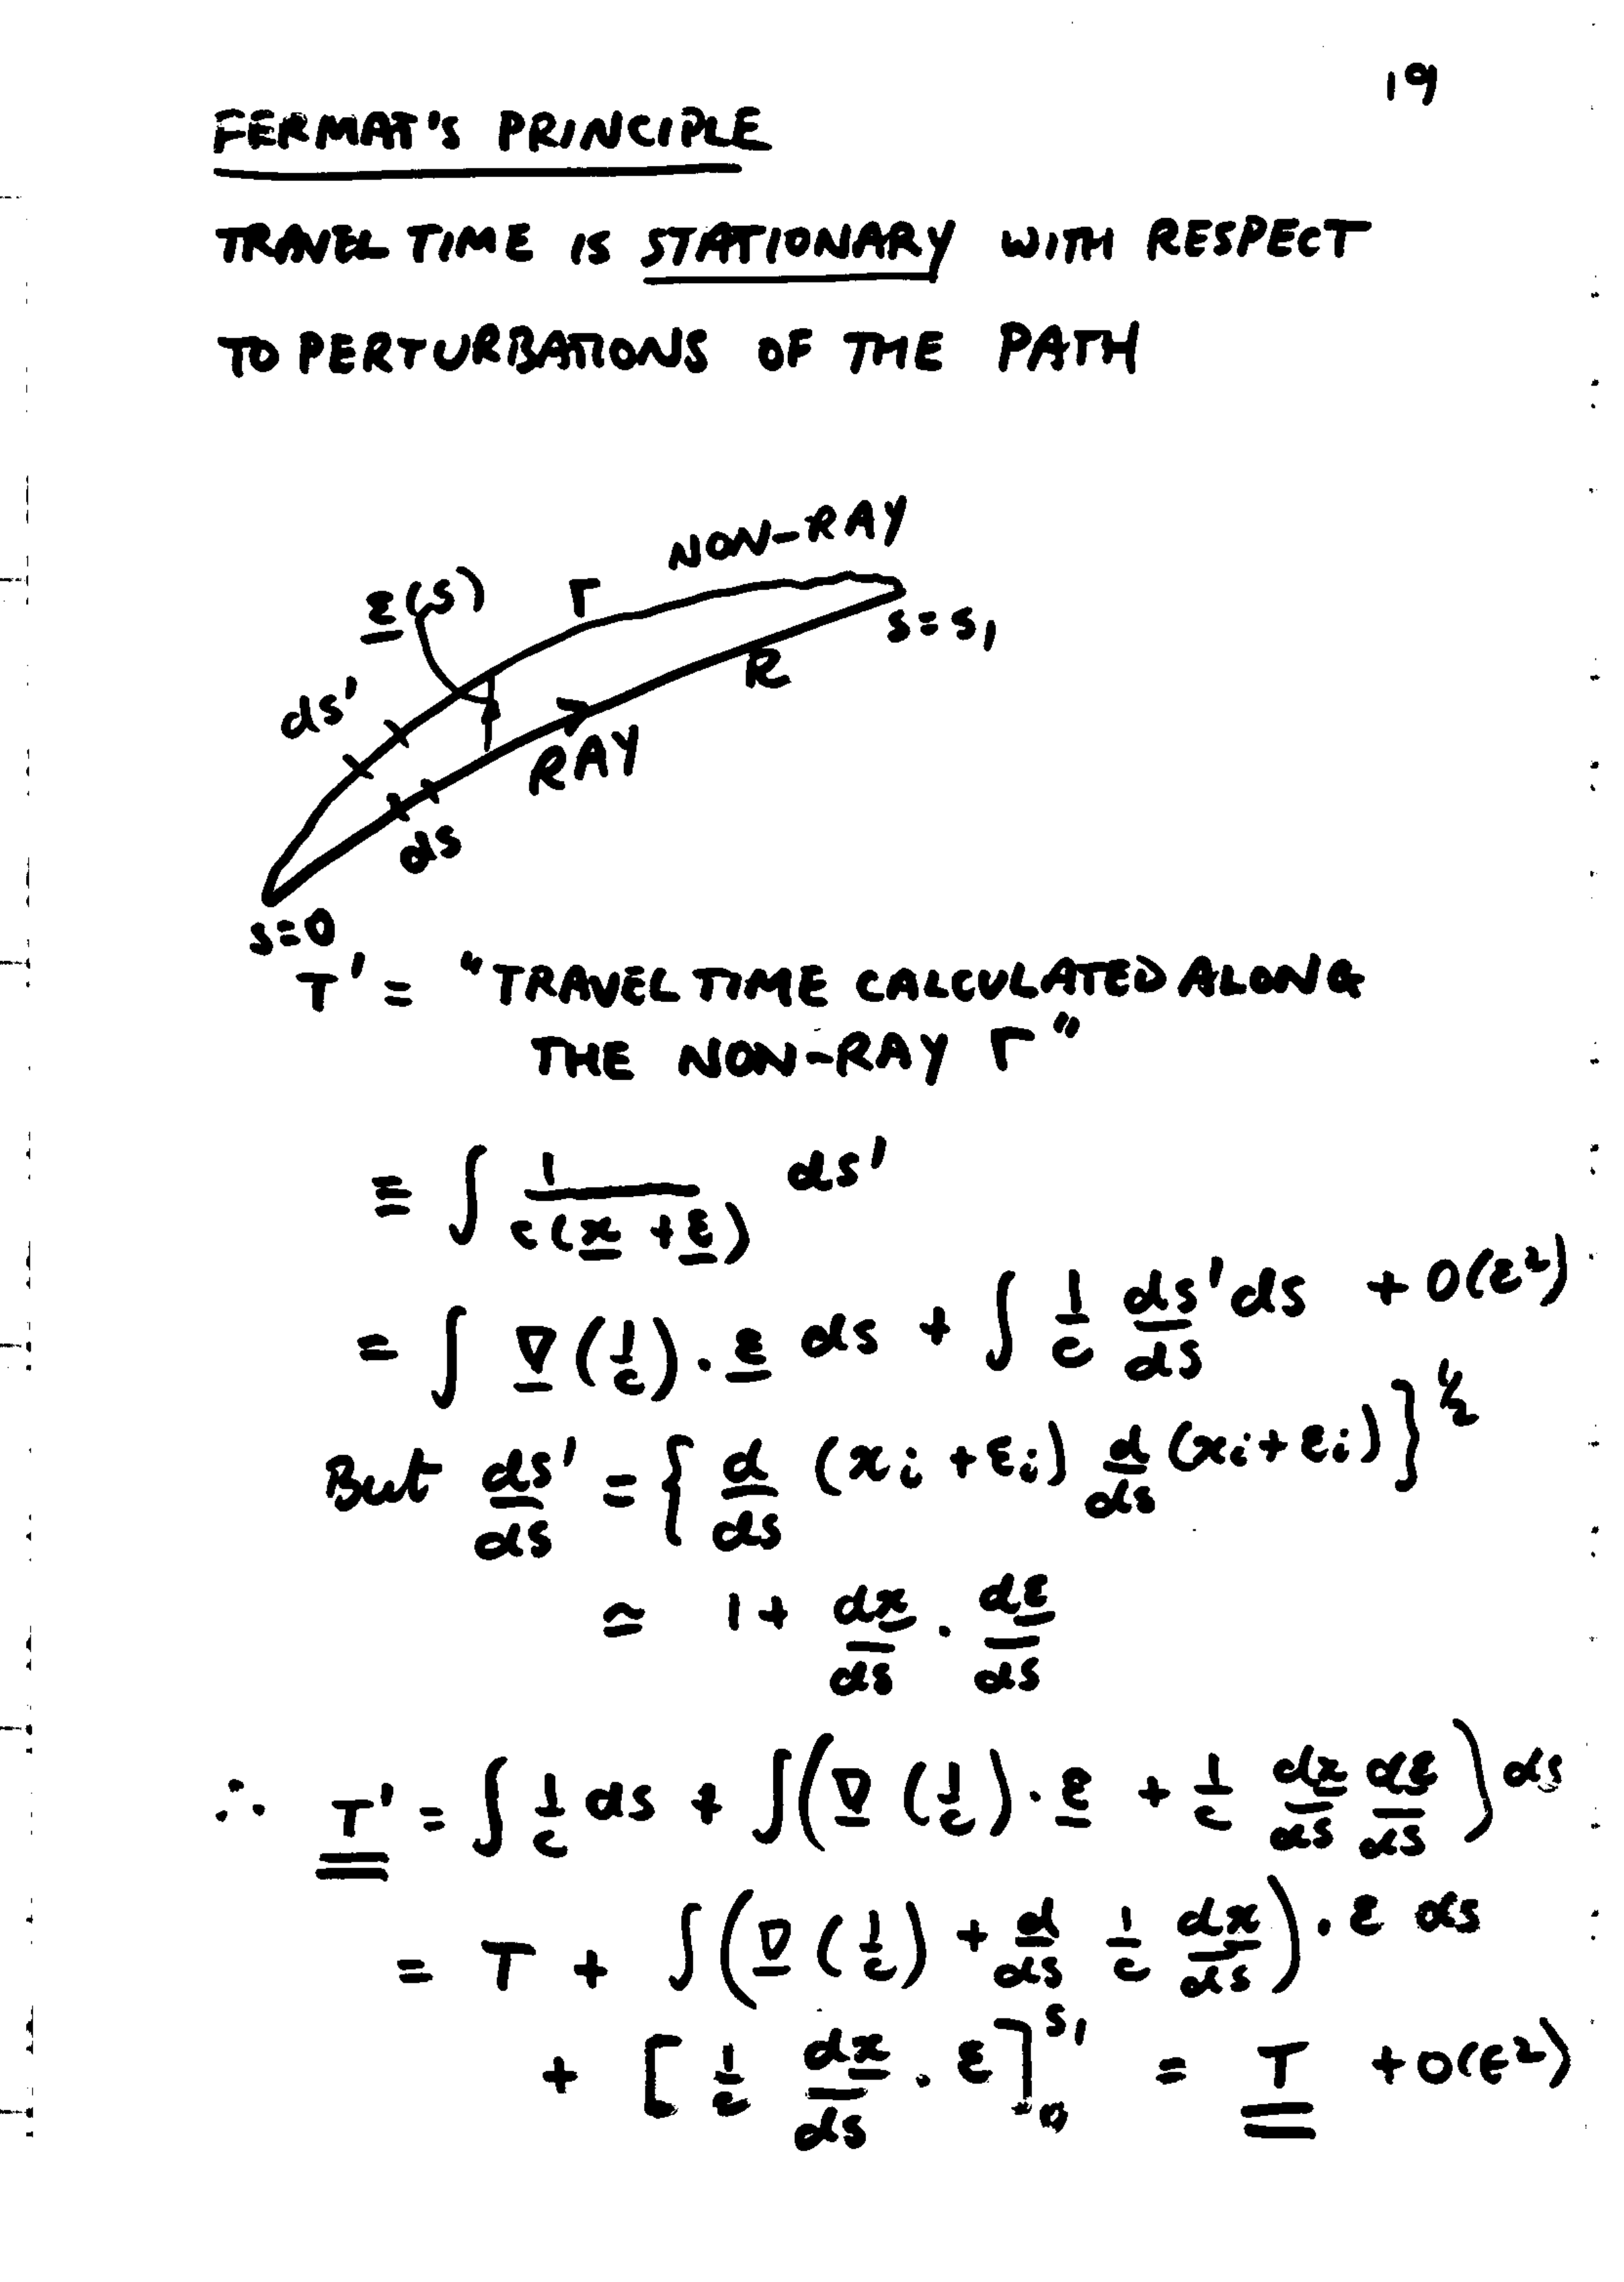 19
FERMAT'S PRINCIPLE
TRAVEL TIME IS STATIONARY WITH RESPECT
TO PERTURBATIONS OF THE PATH
NON-RAY
ε(s) Γ
s = s₁
R
ds'
RAY
ds
s=0
T' = "TRAVEL TIME CALCULATED ALONG
THE NON-RAY Γ"
= ∫ 1/c(x + ε) ds'
= ∫ ∇(1/c) . ε ds + ∫ 1/c ds'/ds ds + O(ε²)
But ds'/ds = { d/ds (xi + εi) d/ds (xi + εi) }^½
≃ 1 + dx/ds . dε/ds
∴ T' = ∫ 1/c ds + ∫ ( ∇(1/c) . ε + 1/c dx/ds dε/ds ) ds
= T + ∫ ( ∇(1/c) + d/ds 1/c dx/ds ) . ε ds
+ [ 1/c dx/ds . ε ]₀^s₁ = T + O(ε²)